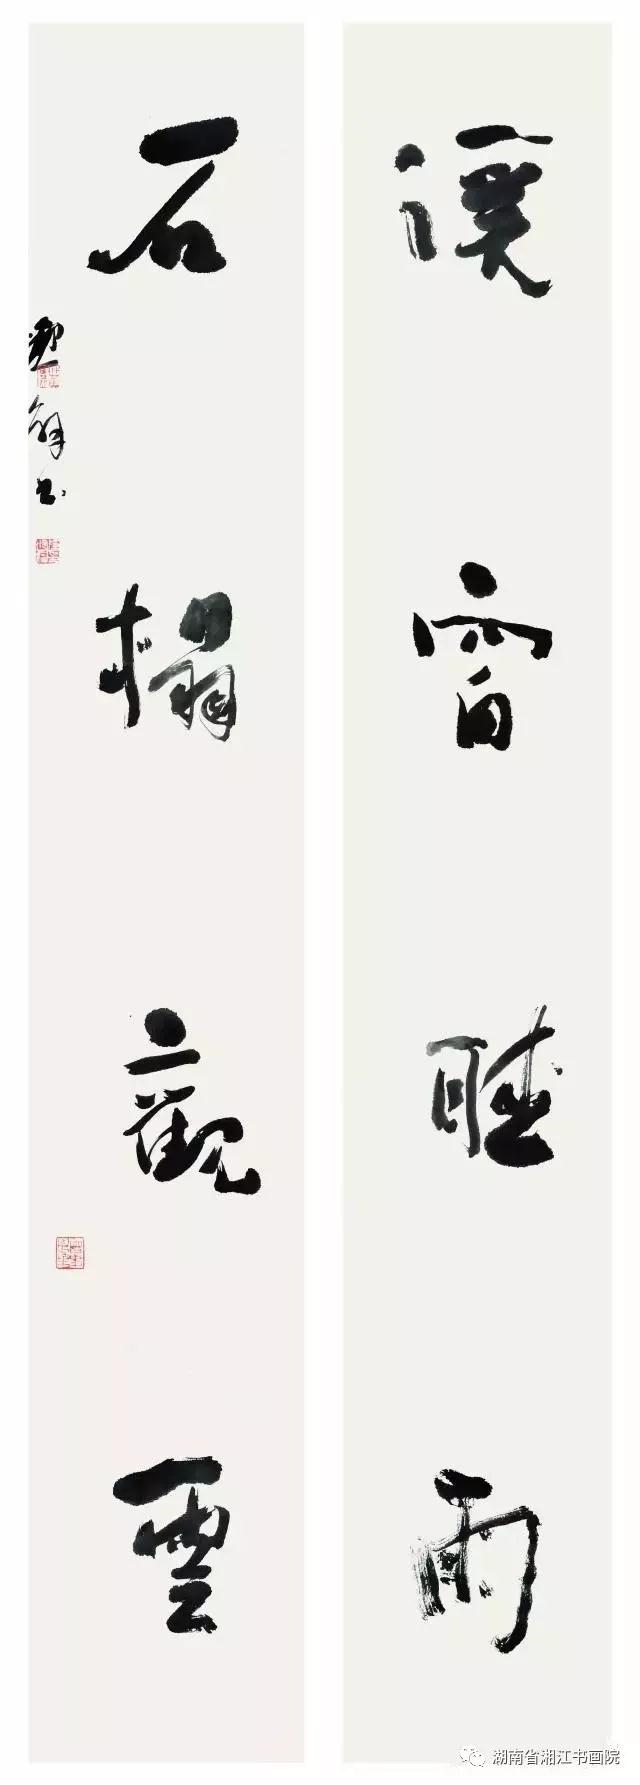 溪窗聽雨
石榻觀雲
湖南省湘江书画院